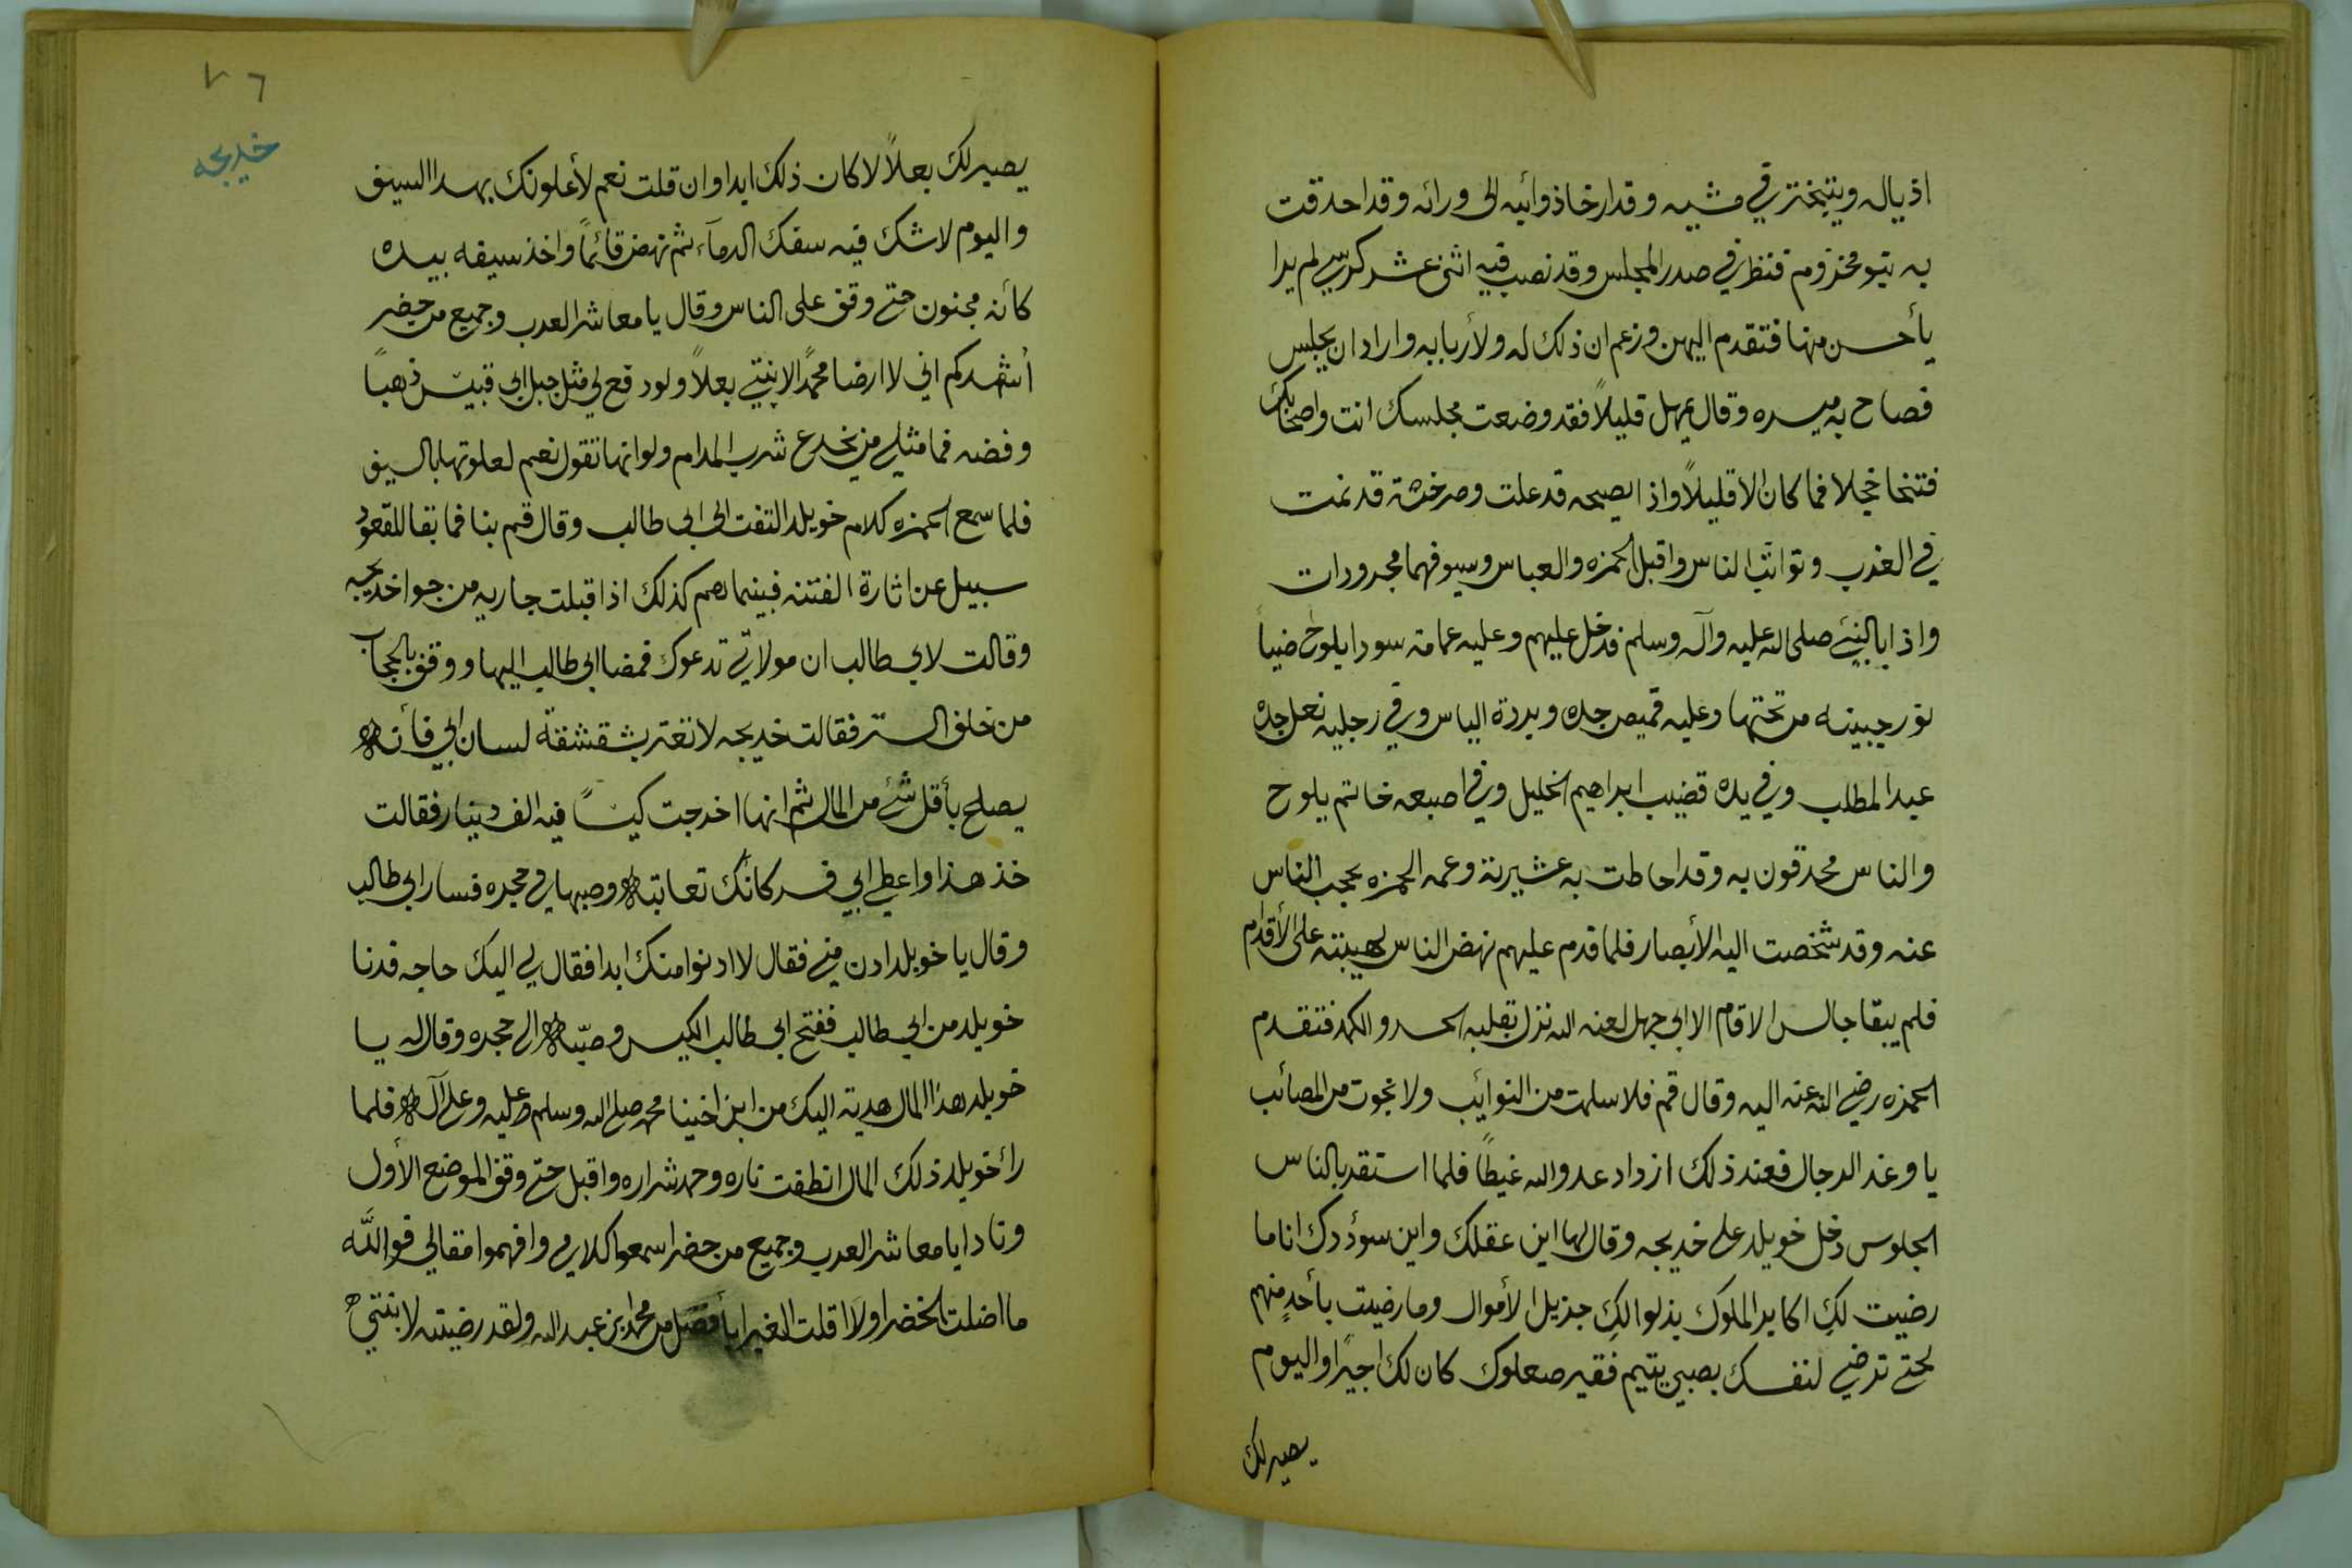 اذياله ويتبختر في مشيه وقد ارخا ذوائبه الى ورائه وقد احدقت
به بنو مخزوم فنظر في صدر المجلس وقد نصب فيه اثنى عشر كرسي لم يرا
بأحسن منها فتقدم اليهن وزعم ان ذلك له ولأربابه واراد ان يجلس
فصاح به ميسره وقال تمهل قليلاً فقد وضعت مجلسك انت واصحابك
فتنحا خجلا فما كان الا قليلاً واذا بصيحه قد علت وصرخة قد نمت
في العرب وتواثب الناس واقبل الحمزه والعباس وسيوفهما مجرورات
واذا بالنبي صلى الله عليه وآله وسلم قد دخل عليهم وعليه عمامة سودا يلوح ضياً
نور جبينه من تحتها وعليه قميص جده وبردة الياس وفي رجليه نعل جده
عبد المطلب وفي يده قضيب ابراهيم الخليل وفي اصبعه خاتم يلوح
والناس محدقون به وقد احاطت به عشيرته وعمه الحمزه يحجب الناس
عنه وقد شخصت اليه الأبصار فلما قدم عليهم نهض الناس لهيبته على الأقدام
فلم يبقا جالس الاقام الا ابي جهل لعنه الله نزل بقلبه الحسد والكمد فتقدم
الحمزه رضي الله عنه اليه وقال قم فلا سلمت من النوائب ولا نجوت من المصائب
يا وغد الرجال فعند ذلك ازداد عدو الله غيظاً فلما استقر بالناس
الجلوس دخل خويلد على خديجه وقال لها اين عقلك واين سؤددك انا ما
رضيت لكِ اكابر الملوك بذلوا لكِ جزيل الأموال وما رضيت بأحدٍ منهم
لحتى ترضي لنفسك بصبي يتيم فقير صعلوك كان لك اجيرًا واليوم
يصير لك
٧٦
خديجه
يصير لك بعلاً لا كان ذلك ابدا وان قلت نعم لأعلونك بهذا السيف
واليوم لا شك فيه سفك الدمآء ثم نهض قائماً واخذ سيفه بيده
كأنه مجنون حتى وقف على الناس وقال يا معاشر العرب وجميع من حضر
أشهدكم اني لا ارضا محمدًا لابنتي بعلاً ولو دفع لي مثل جبل ابي قبيس ذهباً
وفضه فما مثلي من يخدع شرب المدام ولو انها تقول نعم لعلوتها بالسيف
فلما سمع الحمزه كلام خويلد التفت الى ابي طالب وقال قم بنا فما بقا للقعود
سبيل عن اثارة الفتنه فبينما هم كذلك اذ اقبلت جاريه من جوا خديجه
وقالت لابي طالب ان مولاتي تدعوك فمضا ابي طالب اليها ووقف بالحجاب
من خلف الستر فقالت خديجه لا تغتر بشقشقة لسان ابي فأنه
يصلح بأقل شئ من المال ثم انها اخرجت كيسًا فيه الف دينار فقالت
خذ هذا واعطي ابي فسر كانك تعاتبه وصبها في حجره فسار ابي طالب
وقال يا خويلد ادن مني فقال لا ادنوا منك ابدا فقال لي اليك حاجه فدنا
خويلد من ابي طالب ففتح ابي طالب الكيس وصبّه الى حجره وقال له يا
خويلد هذا المال هدية اليك من ابن اخينا محمد صلى الله وسلم عليه وعلى آله فلما
رأ خويلد ذلك المال انطفت ناره وخمد شراره واقبل حتى وقف الموضع الأول
ونادا يا معاشر العرب وجميع من حضر اسمعوا كلامي وافهموا مقالي فوالله
ما اضلت الخضرا ولا اقلت الغبرا بأفضل من محمد ابن عبد الله ولقد رضيته لابنتي